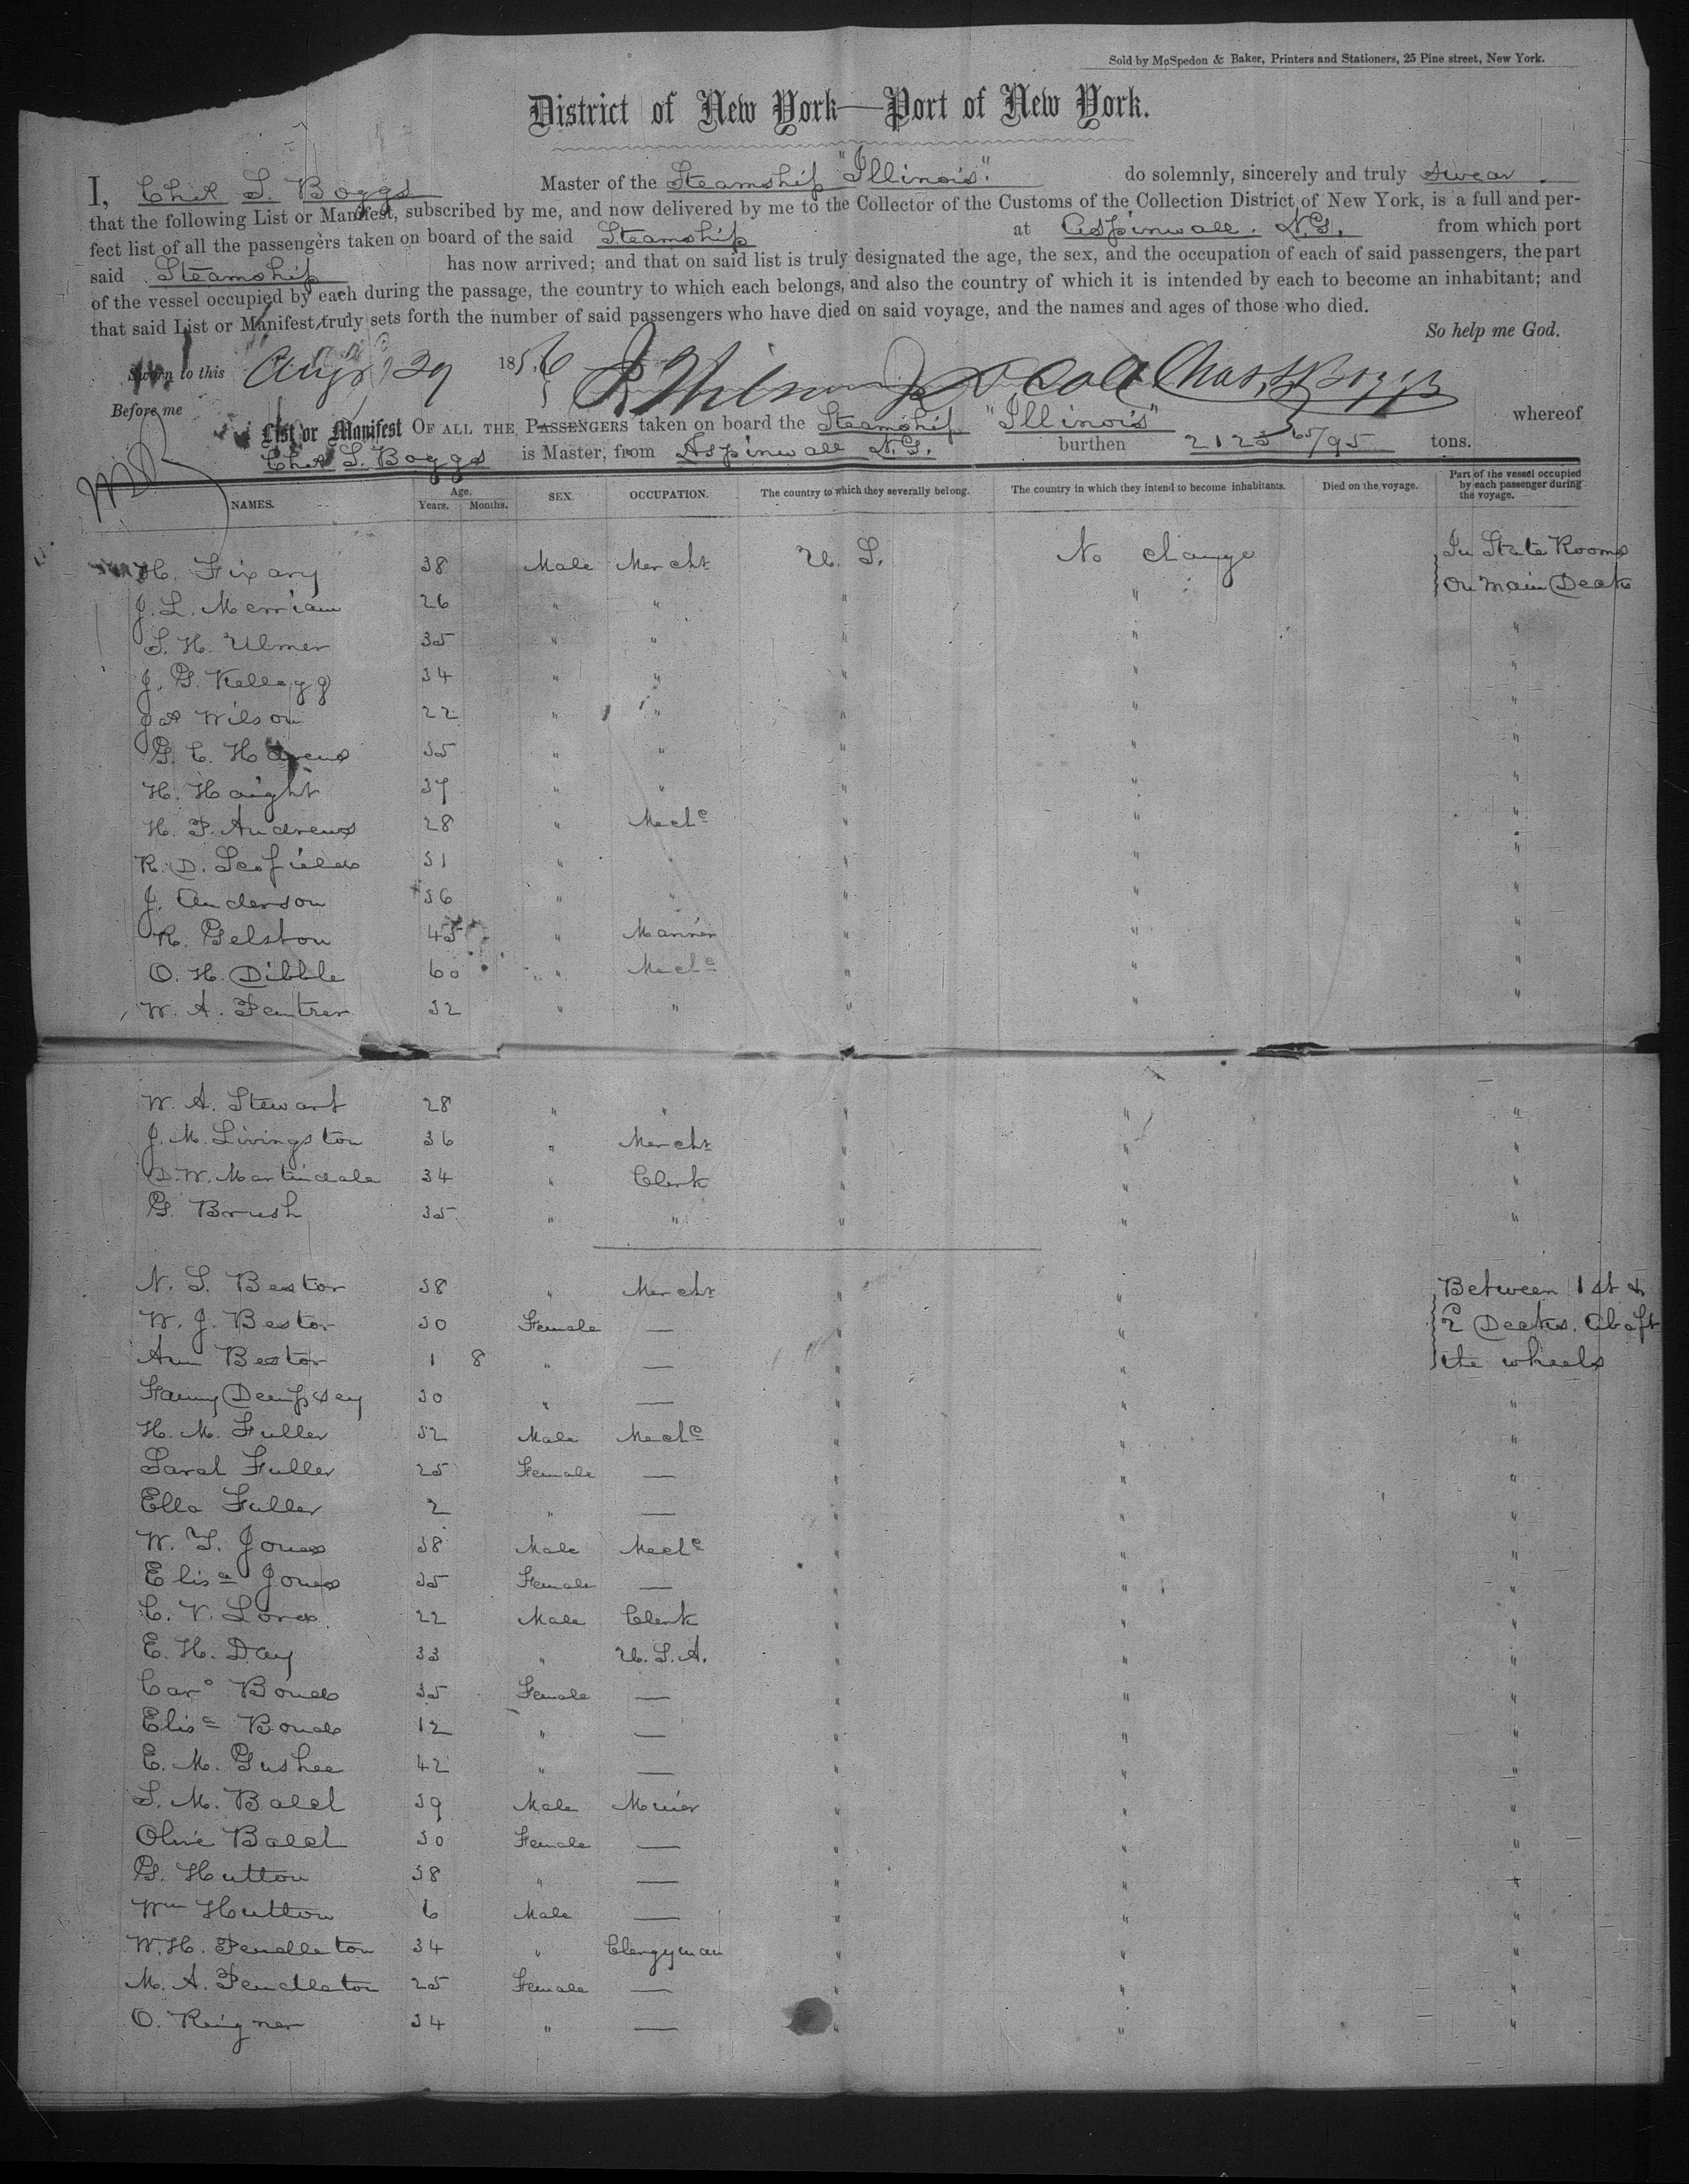 Sold by McSpedon & Baker, Printers and Stationers, 25 Pine street, New York.
District of New York—Port of New York.
I, Chas S. Boggs Master of the Steamship "Illinois" do solemnly, sincerely and truly swear
that the following List or Manifest, subscribed by me, and now delivered by me to the Collector of the Customs of the Collection District of New York, is a full and per-
fect list of all the passengers taken on board of the said Steamship at Aspinwall. N.G. from which port
said Steamship has now arrived; and that on said list is truly designated the age, the sex, and the occupation of each of said passengers, the part
of the vessel occupied by each during the passage, the country to which each belongs, and also the country of which it is intended by each to become an inhabitant; and
that said List or Manifest truly sets forth the number of said passengers who have died on said voyage, and the names and ages of those who died.
So help me God.
Sworn to this Aug 29 1856 Chas S Boggs
Before me
List or Manifest OF ALL THE PASSENGERS taken on board the Steamship "Illinois" whereof
Chas S. Boggs is Master, from Aspinwall N.G. burthen 2123 65/95 tons.
NAMES. Age. Years. Months. SEX. OCCUPATION. The country to which they severally belong. The country in which they intend to become inhabitants. Died on the voyage. Part of the vessel occupied by each passenger during the voyage.
H. Fixary 38 Male Mercht U. S. No change In State Rooms
On Main Deck
J. L. Merriam 26 " " " "
S. H. Ulmer 35 " " " " "
J. G. Kellogg 34 " " " " "
Jas Wilson 22 " " " " "
G. C. Havens 35 " " " " "
H. Haight 37 " " " " "
H. P. Andrews 28 " Mechc " " "
R. D. Scofield 31 " " " " "
J. Anderson 36 " " " " "
R. Gelston 45 " Mariner " " "
O. H. Dibble 60 " Mechc " " "
W. A. 32 " " " " "
W. A. Stewart 28 " " " " "
J. M. Livingston 36 " Mercht " " "
D. W. Martindale 34 " Clerk " " "
G. Brush 35 " " " " "
N. S. Bestor 38 " Mercht " " Between 1st &
W. J. Bestor 30 Female — " " 2 Decks. Abaft
Ann Bestor 1 8 " — " " the wheels
Fanny Dempsey 30 " — " " "
H. M. Fuller 32 Male Mechc " " "
Sarah Fuller 25 Female — " " "
Ella Fuller 2 " — " " "
W. T. Jones 38 Male Mechc " " "
Elisa Jones 35 Female — " " "
C. V. 22 Male Clerk " " "
E. H. Day 33 " U. S. A. " " "
Caro Bond 35 Female — " " "
Elisa Bond 12 " — " " "
E. M. Gushee 42 " — " " "
S. M. Balch 39 Male Miner " " "
Olive Balch 30 Female — " " "
G. Hutton 38 " — " " "
Wm Hutton 6 Male — " " "
W. H. Pendleton 34 " Clergyman " " "
M. A. Pendleton 25 Female — " " "
O. Reigner 34 " — " " "